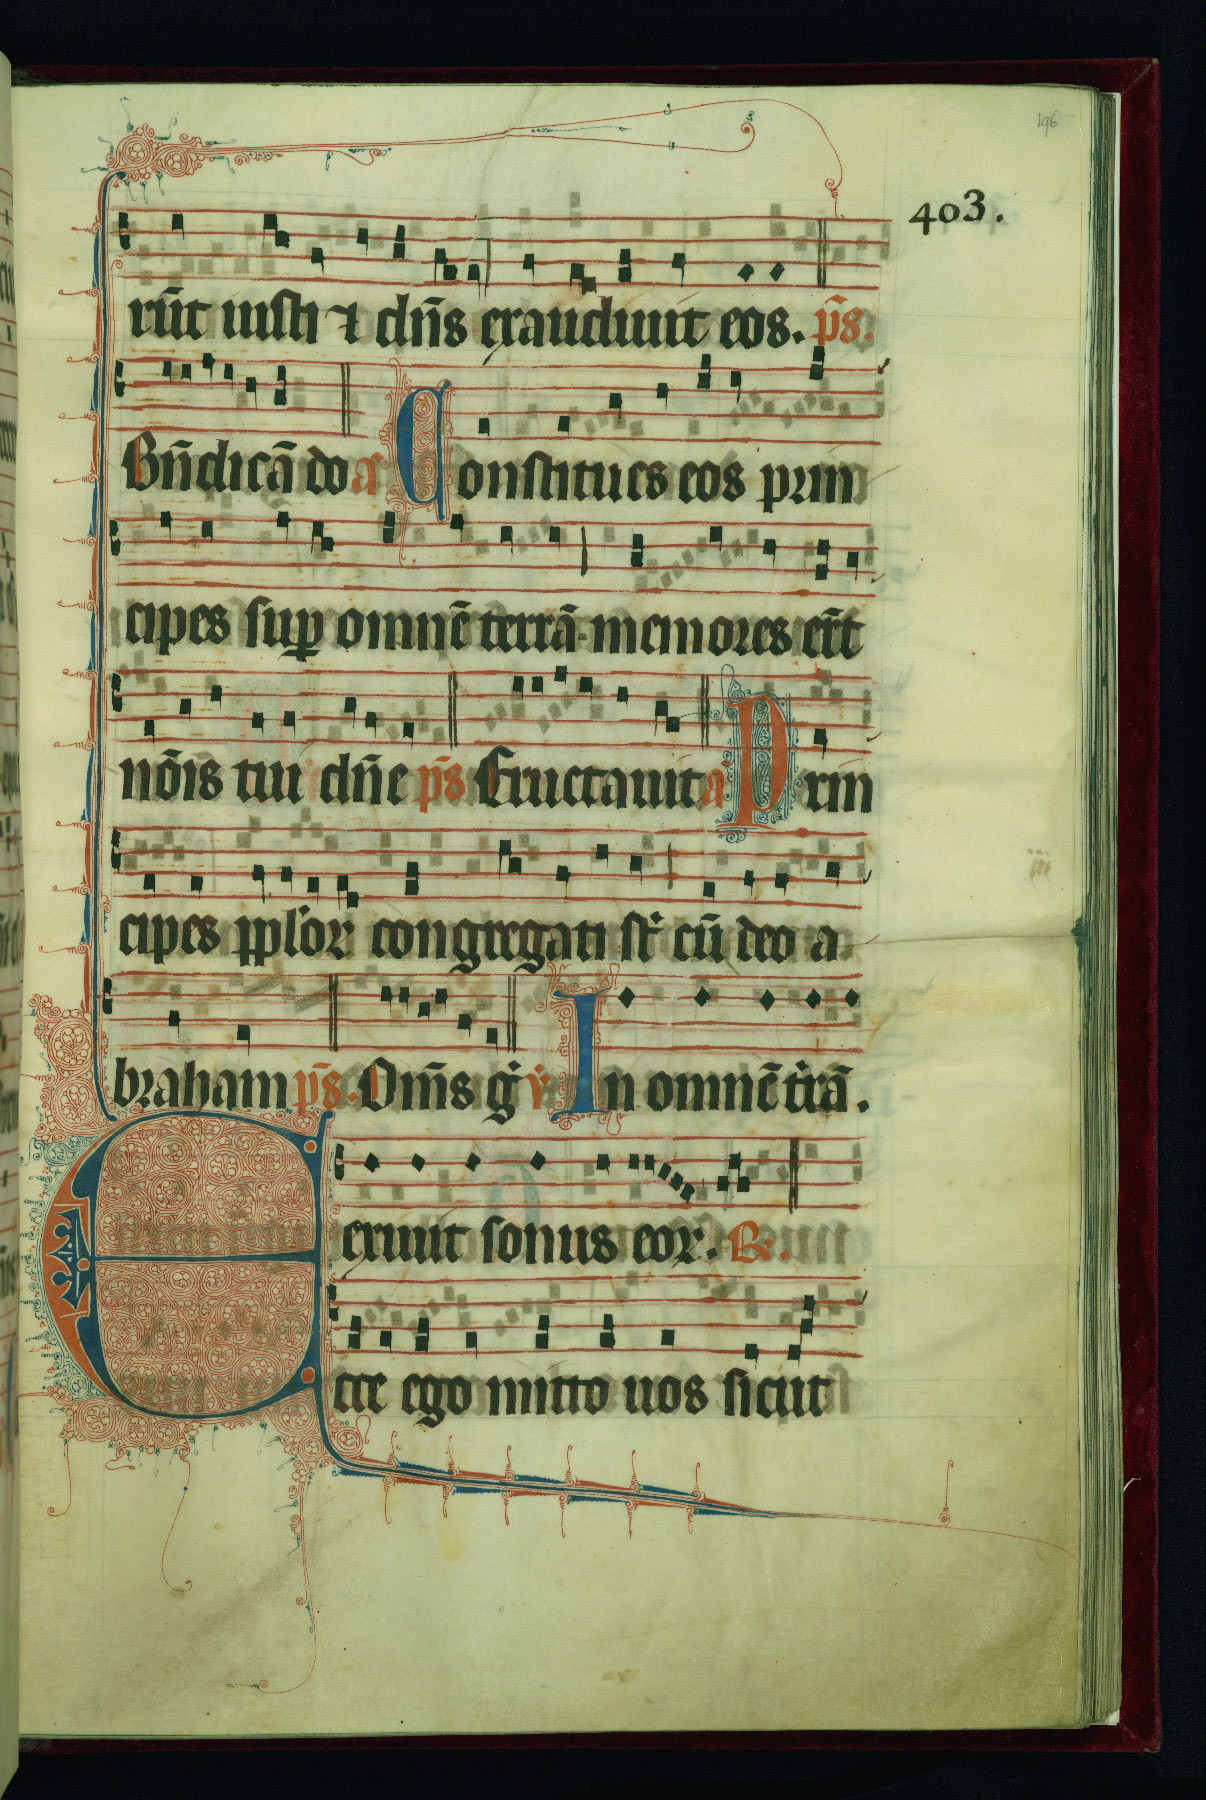 196
403.
rūt iusti ⁊ dn̄s exaudiuit eos. p̄s.
Bn̄dicā do a Constitues eos prin
cipes sup omnē terrā. memores er̄t
nōis tui dn̄e p̄s Eructauit a Prin
cipes pploꝝ congregati st cū deo a
braham p̄s. Dn̄s ẜ v In omnē t̄rā.
exiuit sonus eoꝝ. R.
Ecce ego mitto uos sicut